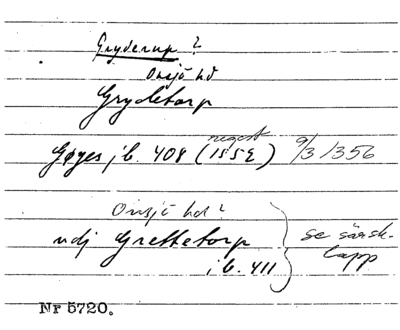 Gryderup ?
Onsjö hd
Grydetorp
regest
Gøyes j.b. 408 (1552) 9/3 1356
Onsjö hd ?
udj Grettetorp
j.b. 411
se särsk.
lapp
Nr 5720.